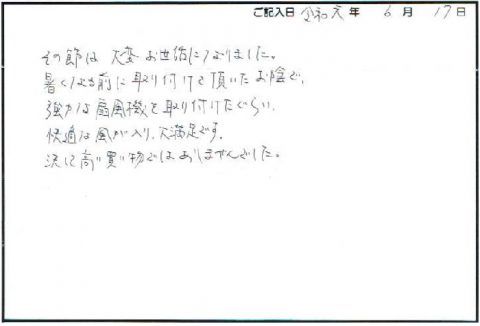 ご記入日 令和元年 6月 17日
その節は大変お世話になりました。
暑くなる前に取り付けて頂いたお陰で、
強力な扇風機を取り付けたぐらい、
快適な風が入り、大満足です。
決して高い買い物ではありませんでした。